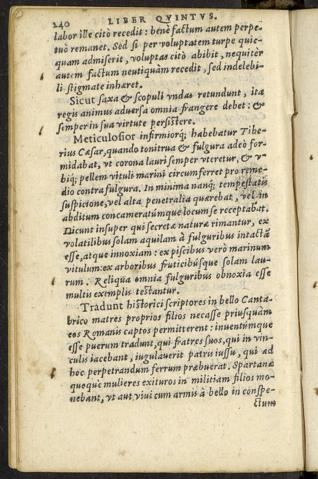 240 LIBER QVINTVS.
labor ille citò recedit: benè factum autem perpe-
tuò remanet. Sed si per voluptatem turpe quic-
quam admiserit, voluptas citò abibit, nequiter
autem factum neutiquàm recedit, sed indelebi-
li stigmate inhæret.
Sicut saxa & scopuli vndas retundunt, ita
regis animus aduersa omnia frangere debet: &
semper in sua virtute persistere.
Meticulosior infirmiorq; habebatur Tibe-
rius Cæsar, quando tonitrua & fulgura adeò for-
midabat, vt corona lauri semper vteretur, & v-
biq; pellem vituli marini circumferret pro reme-
dio contra fulgura. In minima nanq; tempestatis
suspicione, vel alta penetralia quærebat, vel in
abditum concameratúmque locum se receptabat.
Dicunt insuper qui secreta naturæ rimantur, ex
volatilibus solam aquilam à fulguribus intactā
esse, atque innoxiam: ex piscibus verò marinum
vitulum: ex arboribus fruticibúsque solam lau-
rum. Reliqua omnia fulguribus obnoxia esse
multis exemplis testantur.
Tradunt historici scriptores in bello Canta-
brico matres proprios filios necasse priusquàm
eos Romanis captos permitterent: inuentúmque
esse puerum tradunt, qui fratres suos, qui in vin-
culis iacebant, iugulauerit patris iussu, qui ad
hoc perpetrandum ferrum præbuerat. Spartanæ
quoque mulieres exituros in militiam filios mo-
nebant, vt aut viui cum armis à bello in conspe-
ctum